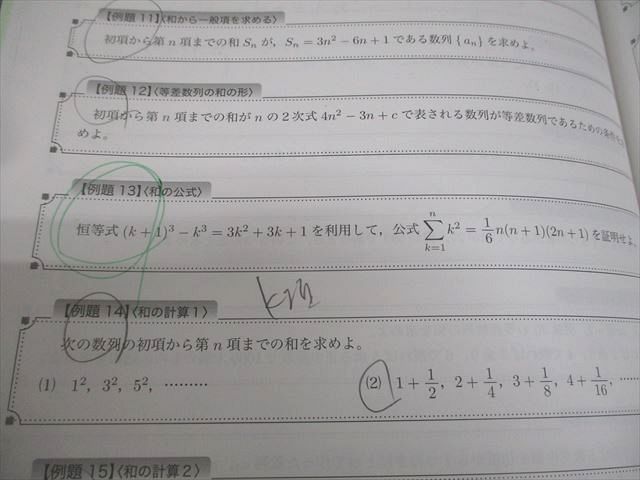 【例題 11】〈和から一般項を求める〉
初項から第 n 項までの和 Sₙ が，Sₙ = 3n² − 6n + 1 である数列 { aₙ } を求めよ。
【例題 12】〈等差数列の和の形〉
初項から第 n 項までの和が n の 2 次式 4n² − 3n + c で表される数列が等差数列であるための条件を
めよ。
【例題 13】〈和の公式〉
恒等式 (k + 1)³ − k³ = 3k² + 3k + 1 を利用して，公式 ∑_{k=1}^{n} k² = 1/6 n(n + 1)(2n + 1) を証明せよ。
【例題 14】〈和の計算 1〉
次の数列の初項から第 n 項までの和を求めよ。
(1) 1², 3², 5², ………
(2) 1 + 1/2, 2 + 1/4, 3 + 1/8, 4 + 1/16, ……
【例題 15】〈和の計算 2〉